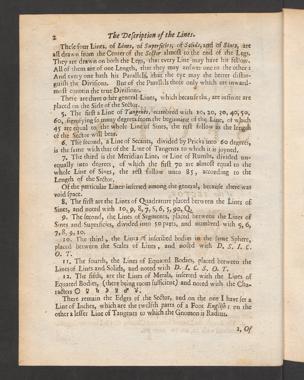 2 The Description of the Lines.
These four Lines, of Lines, of Superficies, of Solids, and of Sines, are
all drawn from the Center of the Sector almost to the end of the Legs.
They are drawn on both the Legs, that every Line may have his fellow.
All of them are of one Length, that they may answer one to the other:
And every one hath his Parallels, that the eye may the better distin-
guish the Divisions. But of the Parallels those only which are inward-
most contain the true Divisions.
There are three other general Lines, which because they are infinite are
placed on the Side of the Sector.
5. The first a Line of Tangents, numbred with 10, 20, 30, 40, 50,
60, signifying so many degrees from the beginning of the Line, of which
45 are equal to the whole Line of Sines, the rest follow as the length
of the Sector will bear.
6. The second, a Line of Secants, divided by Pricks into 60 degrees,
is the same with that of the Line of Tangents to which it is joyned.
7. The third is the Meridian Line, or Line of Rumbs, divided un-
equally into degrees, of which the first 70 are almost equal to the
whole Line of Sines, the rest follow unto 85, according to the
Length of the Sector.
Of the particular Lines inserted among the general, because there was
void space.
8. The first are the Lines of Quadrature placed between the Lines of
Sines, and noted with 10, 9, 8, 7, S, 6, 5, 90, Q.
9. The second, the Lines of Segments, placed between the Lines of
Sines and Superficies, divided into 50 parts, and numbred with 5, 6,
7, 8, 9, 10.
10. The third, the Lines of inscribed bodies in the same Sphere,
placed between the Scales of Lines, and noted with D. S. I. C.
O. T.
11. The fourth, the Lines of Equated Bodies, placed between the
Lines of Lines and Solids, and noted with D. I. C. S. O. T.
12. The fifth, are the Lines of Metals, inserted with the Lines of
Equated Bodies, (there being room sufficient) and noted with the Cha-
racters
There remain the Edges of the Sector, and on the one I have set a
Line of Inches, which are the twelfth parts of a Foot English: on the
other a lesser Line of Tangents to which the Gnomon is Radius.
2, Of